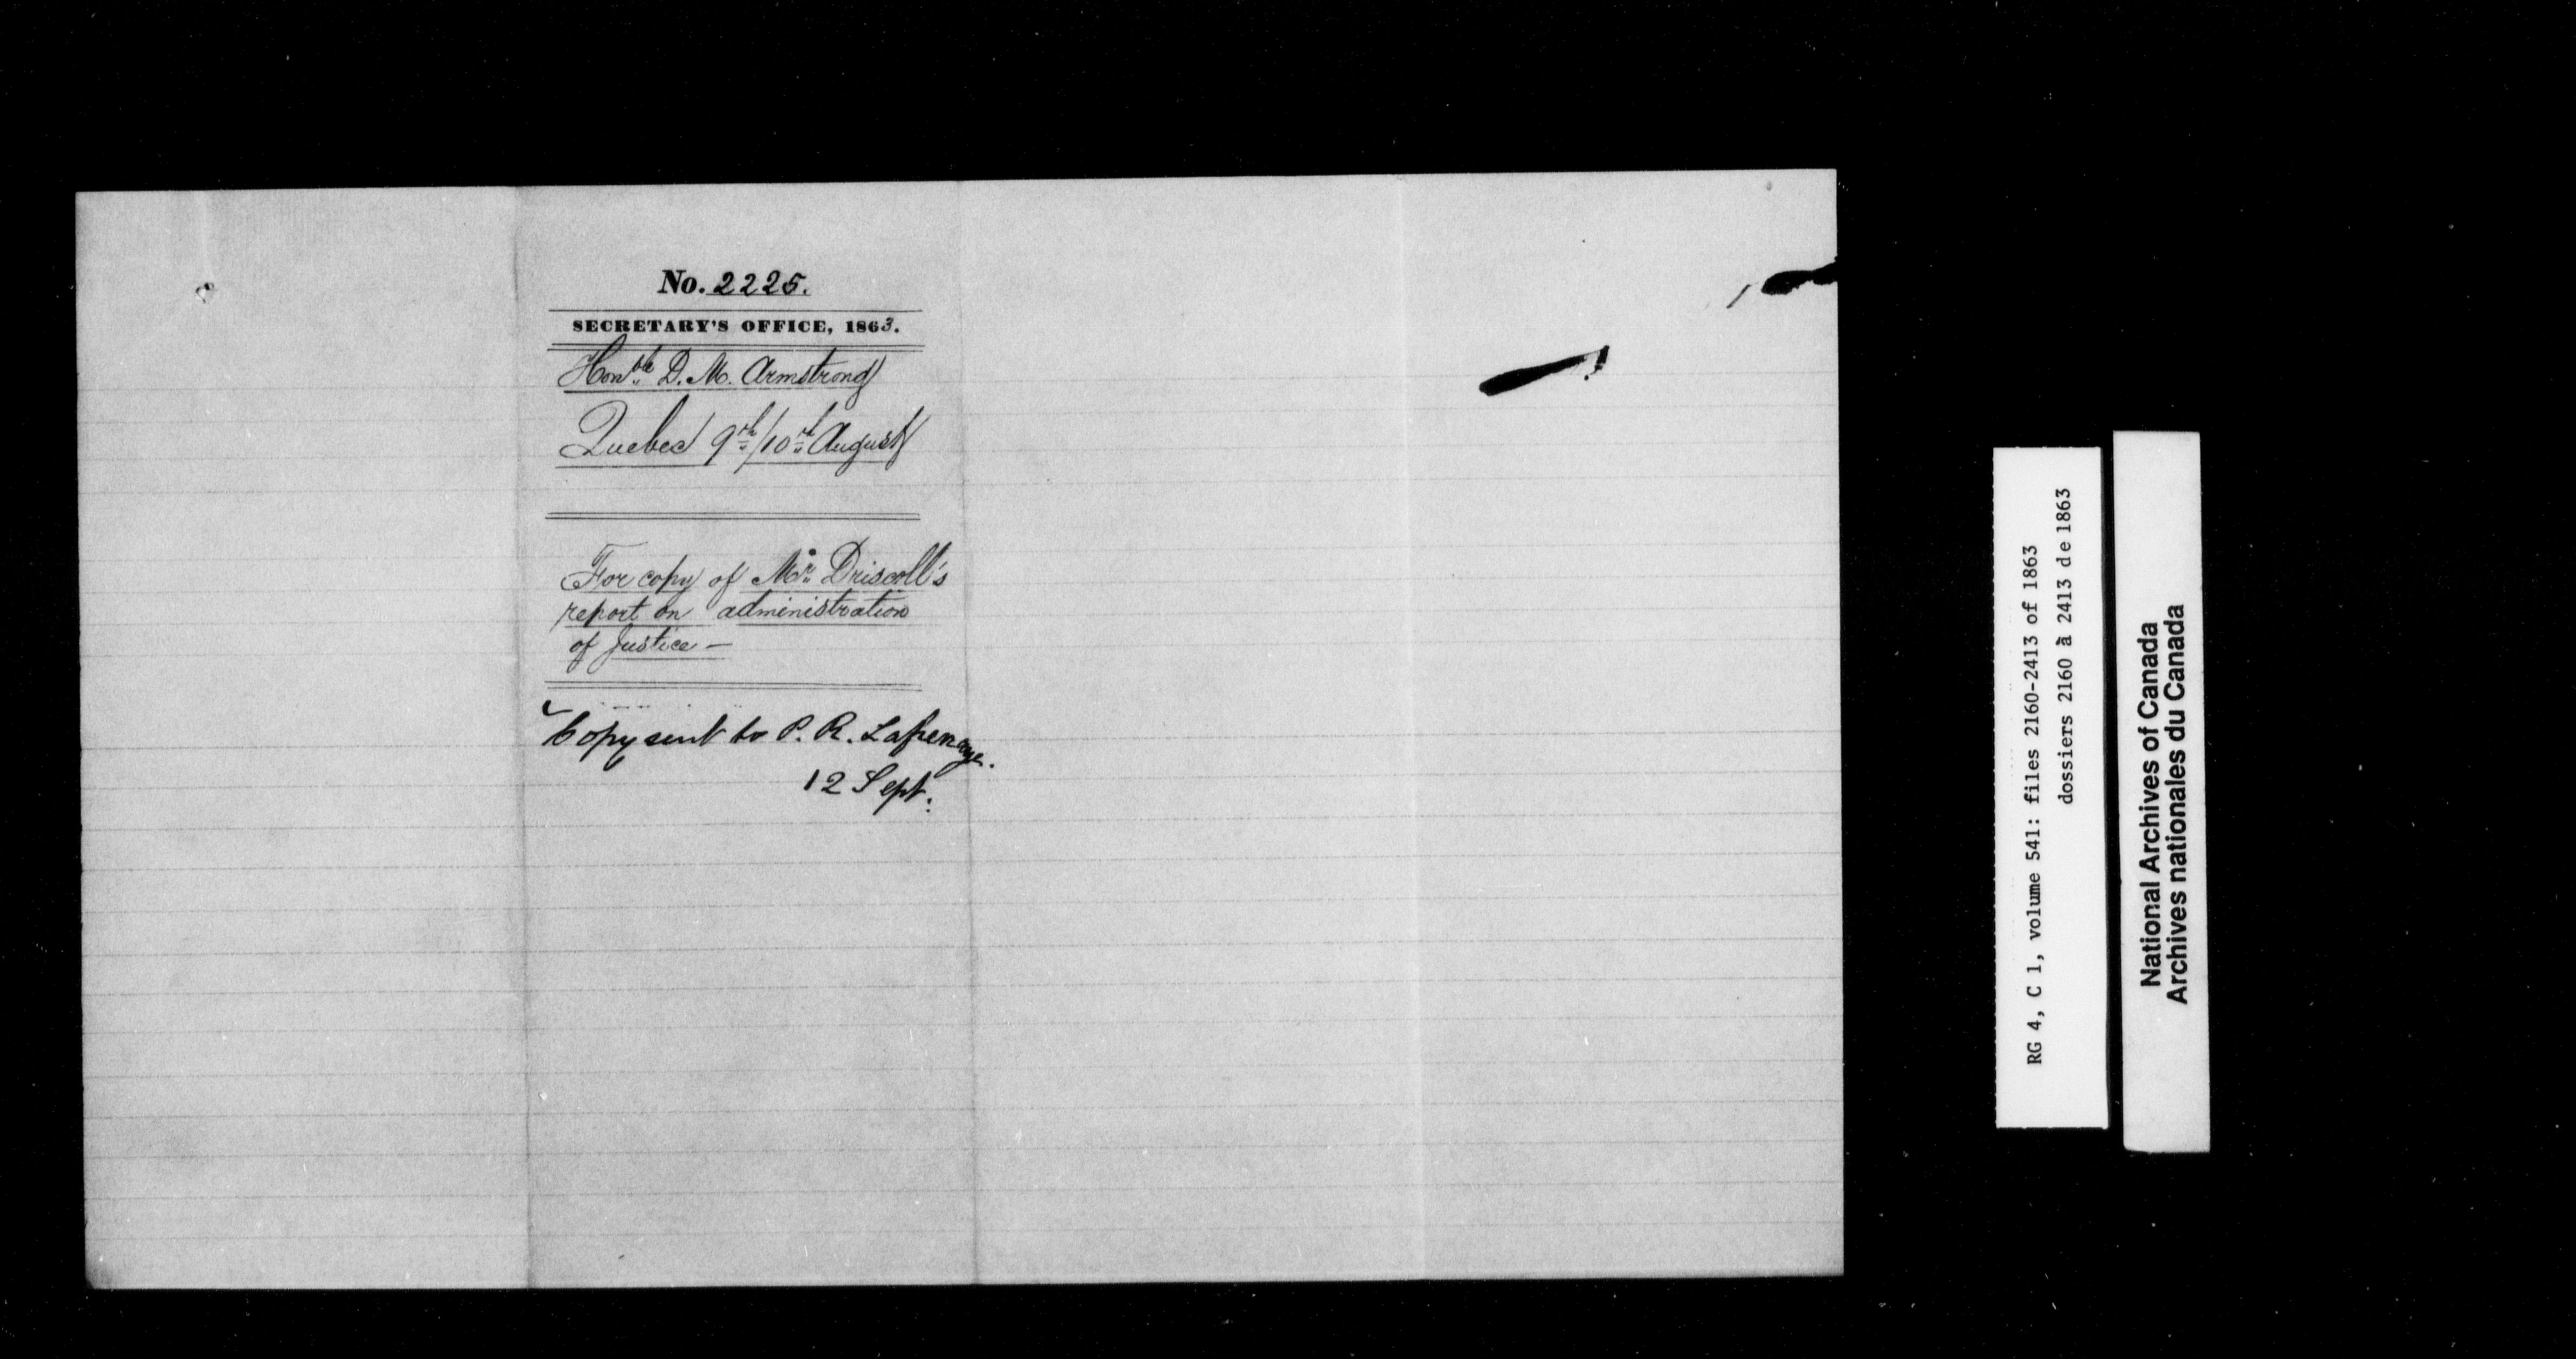 No. 2225.
SECRETARY'S OFFICE, 1863.
Honble D. M. Armstrong
Quebec 9th/10th August
For copy of Mr Driscoll's
report on administration
of Justice —
Copy sent to P. R. Lafrenaye.
12 Sept.
RG 4, C 1, volume 541: files 2160-2413 of 1863
dossiers 2160 à 2413 de 1863
National Archives of Canada
Archives nationales du Canada